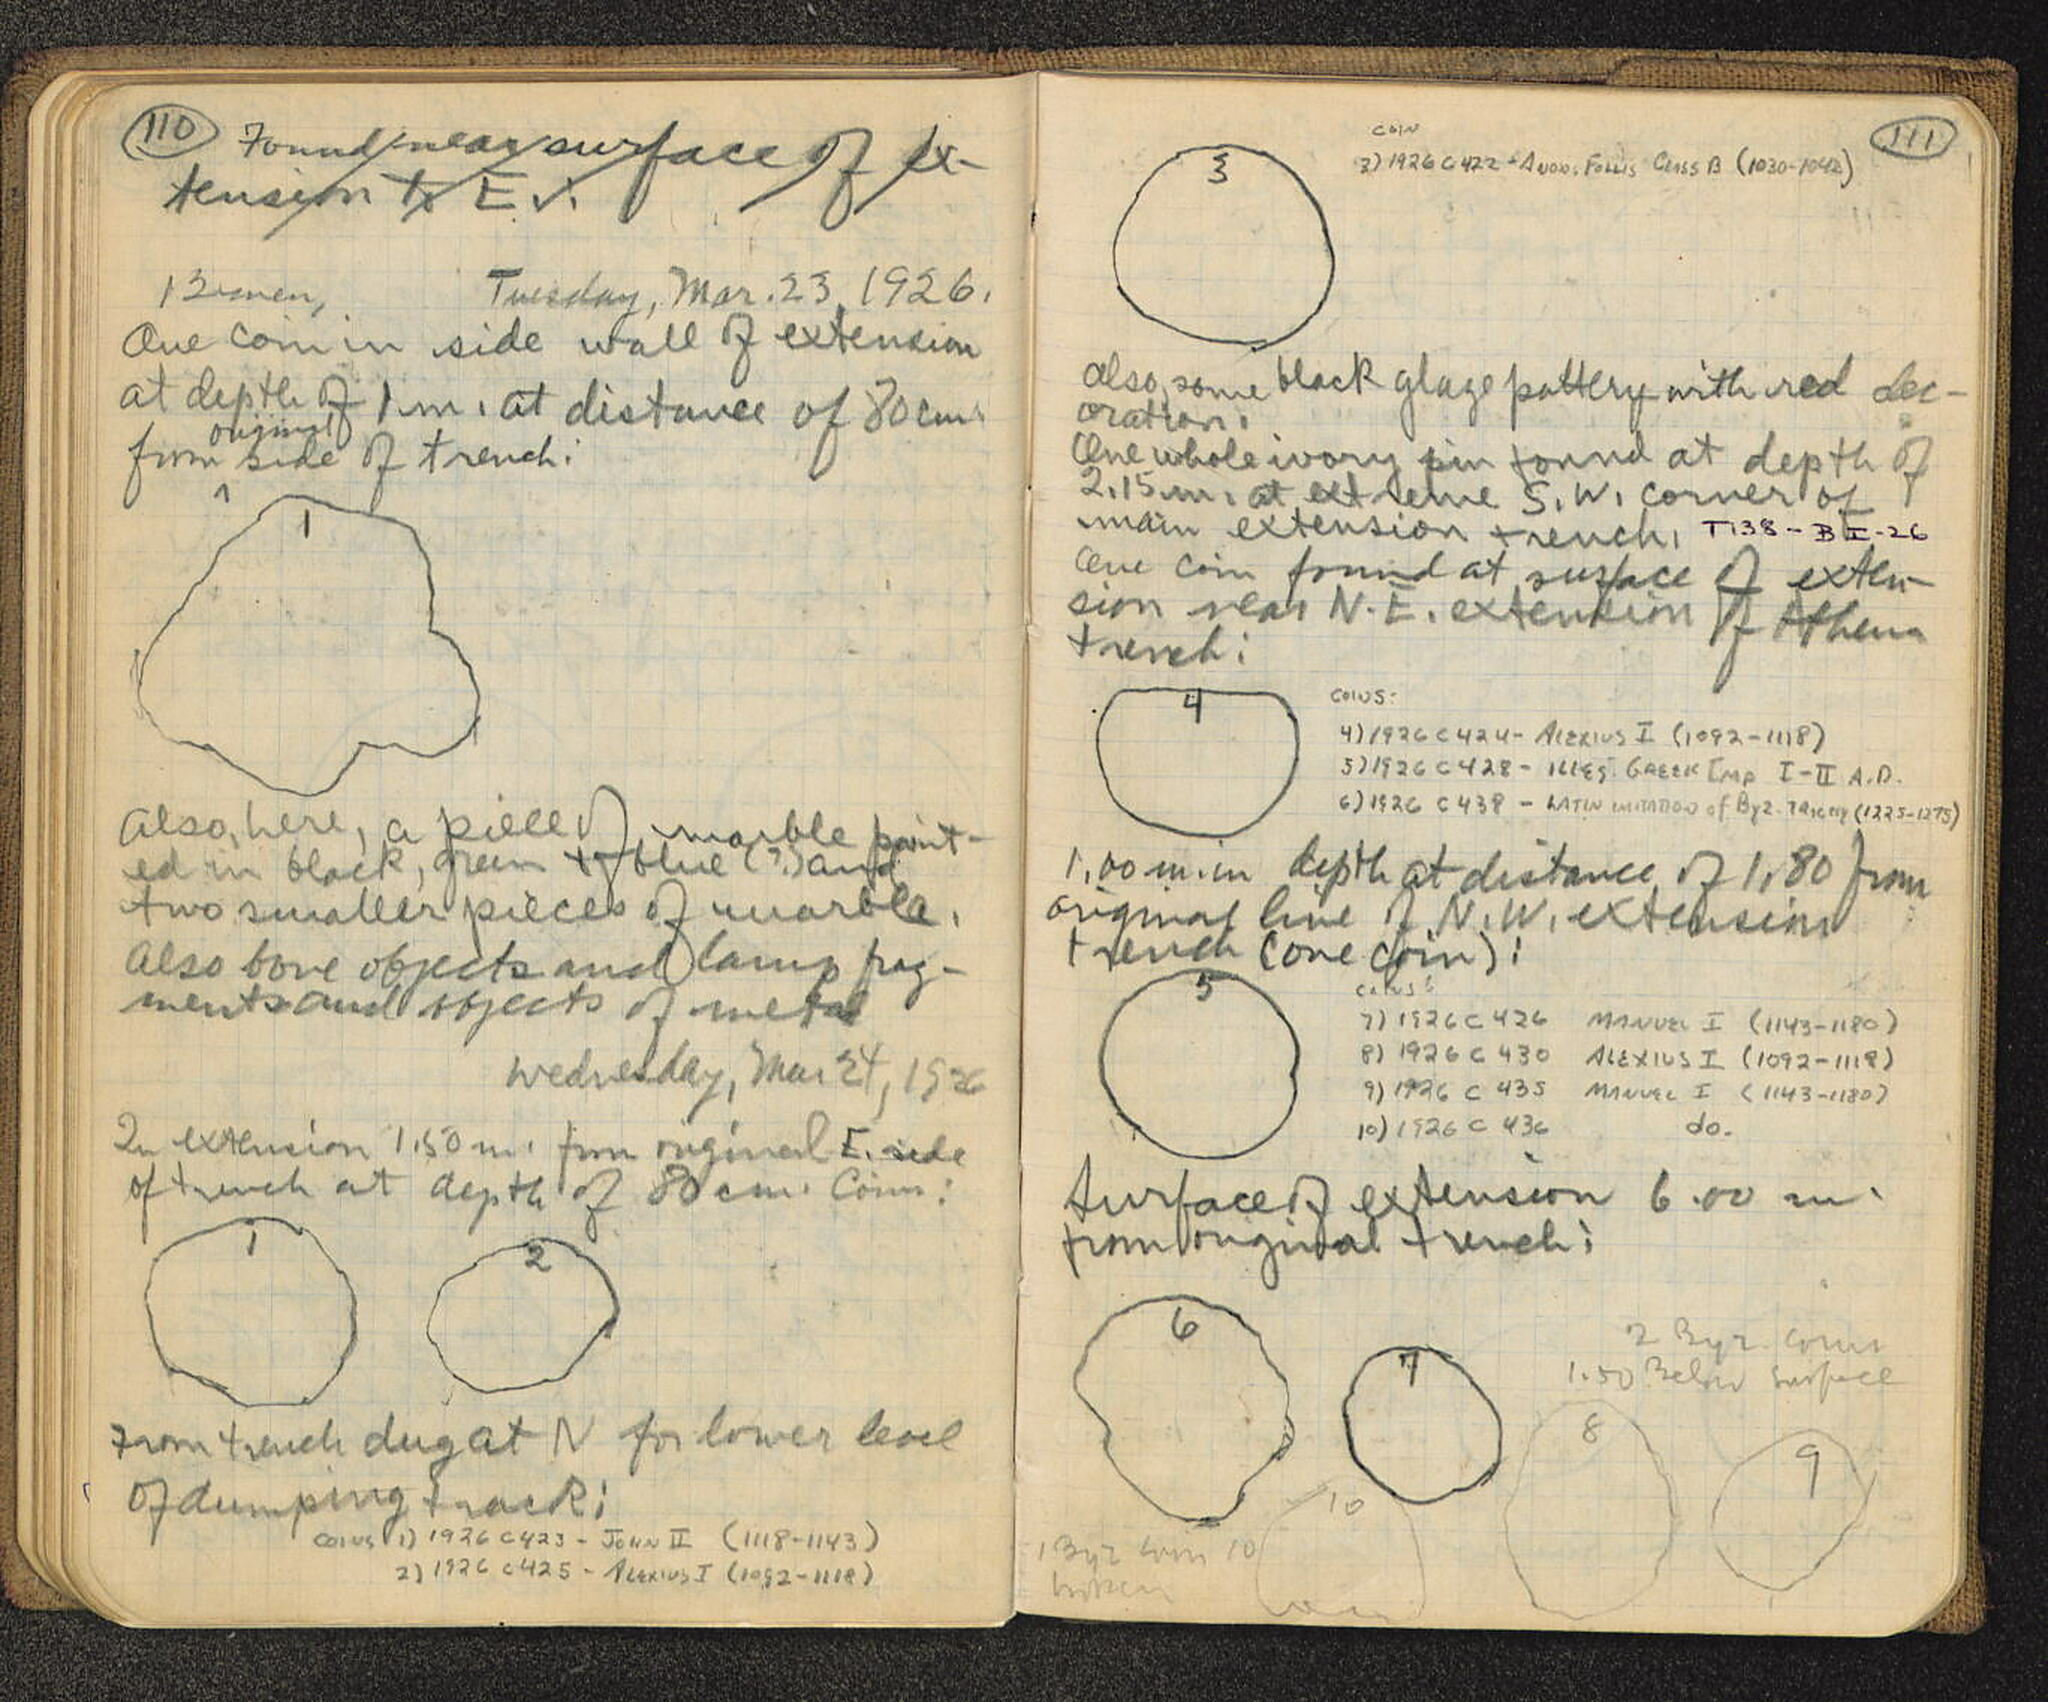 110
Found near surface of ex-
tension to E.
12 men, Tuesday, Mar. 23, 1926.
One coin in side wall of extension
at depth of 1 m. at distance of 80 cm.
original
from side of trench:
1
Also, here, a piece of marble paint-
ed in black, green & blue (?) and
two smaller pieces of marble.
Also bone objects and lamp frag-
ments and objects of metal
Wednesday, Mar 24, 1926
In extension 1.50 m. from original E. side
of trench at depth of 80 cm. Coins:
1 2
From trench dug at N for lower level
of dumping track:
COINS 1) 1926 C423 - JOHN II (1118-1143)
2) 1926 C425 - ALEXIUS I (1092-1118)
111
COIN
3) 1926 C422 - ANON. FOLLIS CLASS B (1030-1042)
3
also, some black glaze pottery with red dec-
oration.
One whole ivory pin found at depth of
2.15 m. at extreme S.W. corner of
main extension trench. T138 - B II - 26
One coin found at surface of exten-
sion near N.E. extension of Athena
trench:
4
COINS:
4) 1926 C424 - ALEXIUS I (1092-1118)
5) 1926 C428 - ILLEG. GREEK IMP I-II A.D.
6) 1926 C438 - LATIN IMITATION of Byz. (1225-1275)
1.00 m. in depth at distance of 1.80 from
original line of N.W. extension
trench (one coin):
5
COINS:
7) 1926 C 426 MANUEL I (1143-1180)
8) 1926 C 430 ALEXIUS I (1092-1118)
9) 1926 C 435 MANUEL I (1143-1180)
10) 1926 C 436 do.
Surface of extension 6.00 m.
from original trench:
6 7
2 Byz. Coins
1.50 Below Surface
8 9
10
1 Byz coin 10
broken